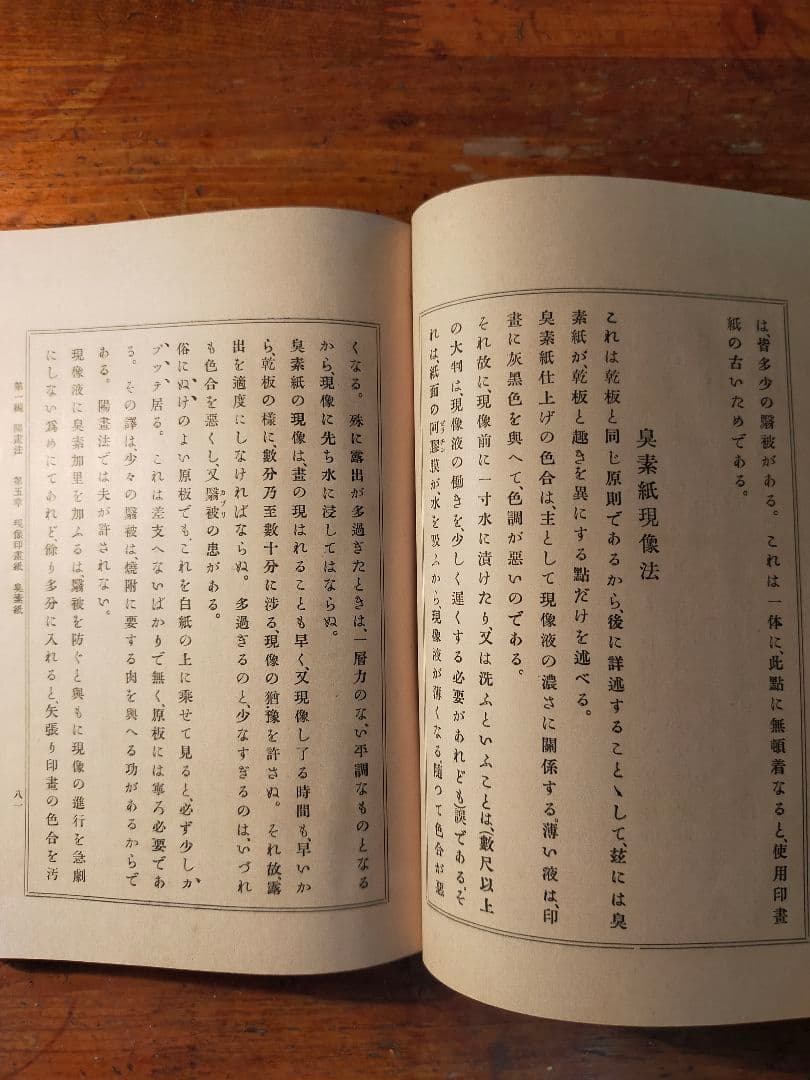 は、皆多少の翳被がある。これは一体に、此點に無頓着なると、使用印畫
紙の古いためである。
臭素紙現像法
これは乾板と同じ原則であるから、後に詳述することゝして、玆には臭
素紙が、乾板と趣きを異にする點だけを述べる。
臭素紙仕上げの色合は、主として現像液の濃さに關係する。薄い液は、印
畫に灰黑色を與へて、色調が惡いのである。
それ故に、現像前に一寸水に漬けたり、又は洗ふといふことは、(數尺以上
の大判は、現像液の働きを、少しく遲くする必要があれども)誤である。そ
れは、紙面の阿膠膜が、水を吸ふから、現像液が薄くなる。隨つて色合が惡
くなる。殊に露出が多過ぎたときは、一層力のない、平調なものとなる
から、現像に先ち水に浸してはならぬ。
臭素紙の現像は、畫の現はれることも早く、又現像し了る時間も、早いか
ら、乾板の樣に、數分乃至數十分に涉る、現像の猶豫を許さぬ。それ故、露
出を適度にしなければならぬ。多過ぎるのと、少なすぎるのは、いづれ
も色合を惡くし、又翳被の患がある。
俗にぬけのよい原板でも、これを白紙の上に乘せて見ると、必ず少しか
ブッテ居る。これは差支へないばかりで無く、原板には寧ろ必要であ
る。その譯は、少々の翳被は、燒附に要する肉を與へる功があるからで
ある。陽畫法では夫が許されない。
現像液に臭素加里を加ふるは、翳被を防ぐと與もに現像の進行を急劇
にしない爲めにてあれど、餘り多分に入れると、矢張り印畫の色合を汚
第一編 陽畫法 第五章 現像印畫紙 臭素紙 八一